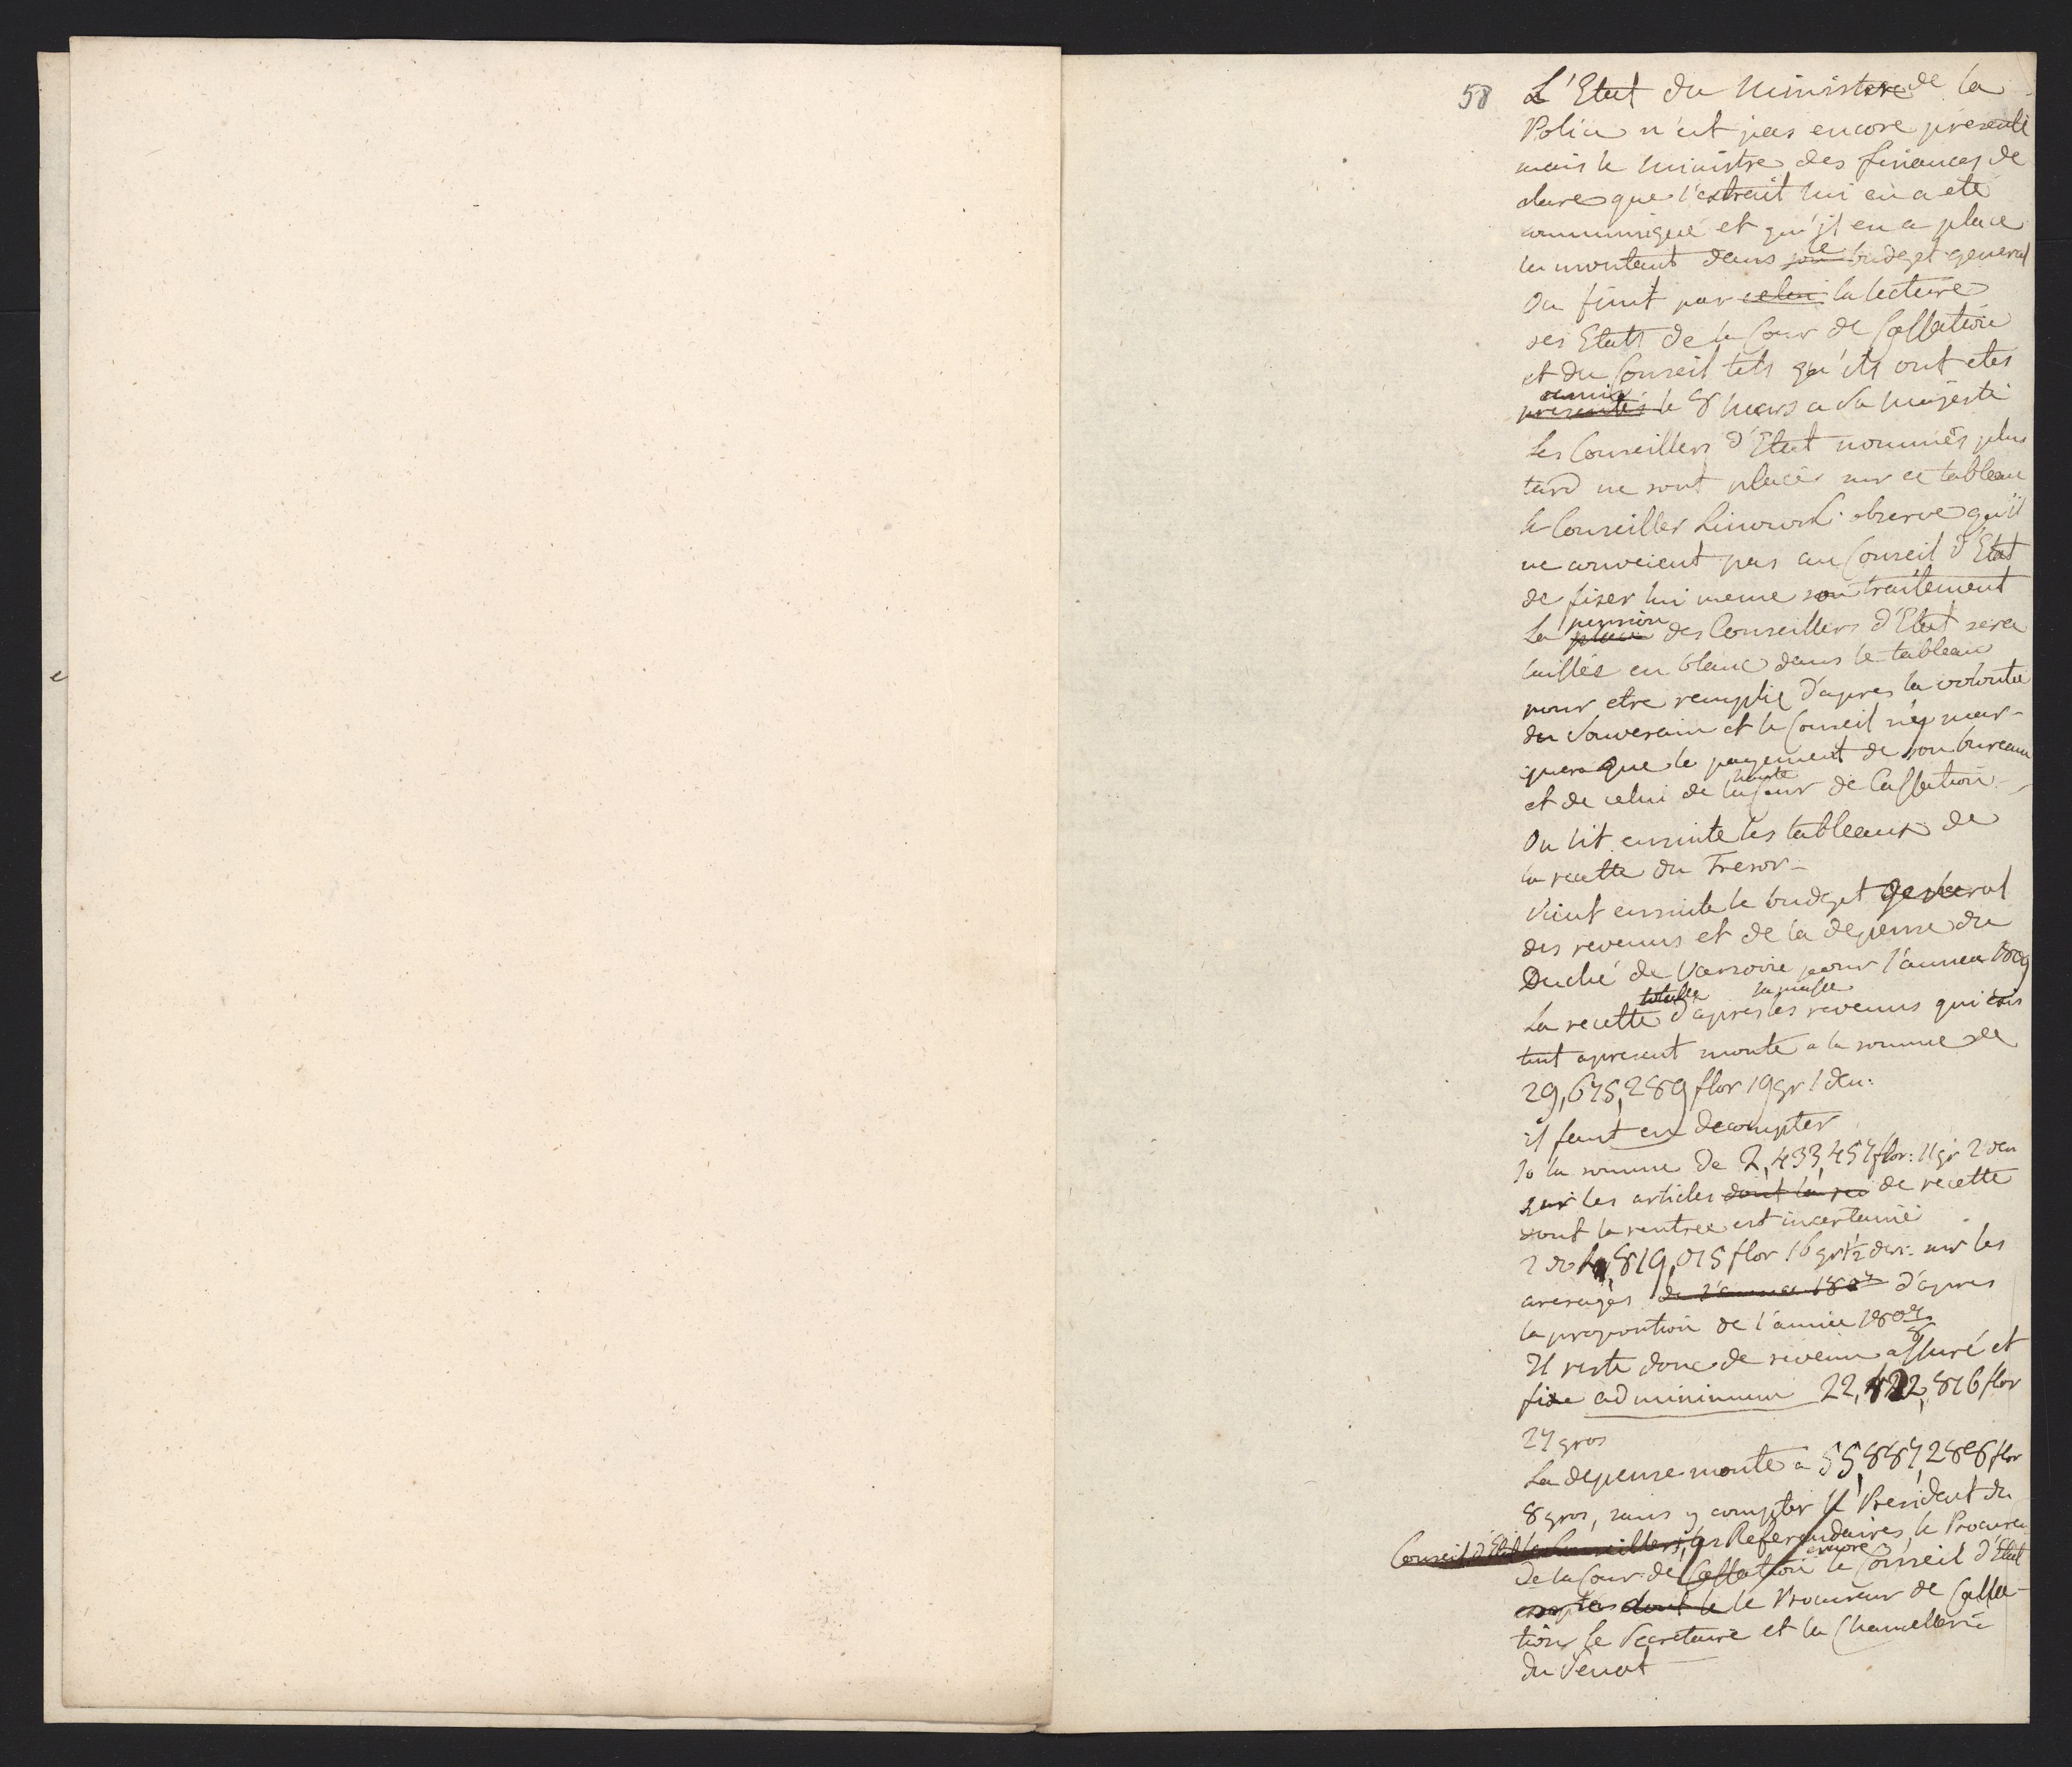 58
L'Etat du Ministere de la
Police n'est pas encore presenté
mais le Ministre des finances de
clare que l'extrait lui en a eté
communiqué et qu'jl en a place
le montant dans son le budget general
On finit par celui la lecture
des Etats de la Cour de Cassation
et du Conseil tels qu'ils ont etes
remis
presentés le 8 Mars a Sa Majesté
Les Conseillers d'Etat nommés plus
tard ne sont placés sur ce tableau
le Conseiller Linowski observe qu'il
ne convient pas au Conseil d'Etat
de fixer lui meme son traitement
pension
La place des Conseillers d'Etat sera
laissée en blanc dans le tableau
pour etre remplie d'apres la volonté
du Souverain et le Conseil n'y mar-
quera que le payement de son bureau
et de celui de la haute Cour de Cassation -
On lit ensuite les tableaux de
la recette du Tresor -
Vient ensuite le budget general
des revenus et de la depense du
Duché de Varsovie pour l'année 1809
totale la masse
La recette d'apres les revenus qui exis
tent apresent monte a la somme de
29,675,289 flor 19 gr 1 den:
il faut en decompter
1o la somme de 2,433,457 flor: 11 gr 2 den
sur les articles dont la re de recette
dont la rentree est incertaine
2do 4,819,015 flor 16 gr 1½ den: sur les
arerages de l'année 1807 d'apres
la proportion de l'année 1807/8
Il reste donc de revenu assuré et
fixe ad minimum 22,422,816 flor
27 gros
La depense monte a 55,887,286 flor
8 gros, sans y compter le President du
Conseil d'Etat les Conseillers, les Referendaires, le Procureur
de la Cour de Cassation encore le Conseil d'Etat
dont le le Procureur de Cassa-
tion le Secretaire et la Chancellerie
du Senat